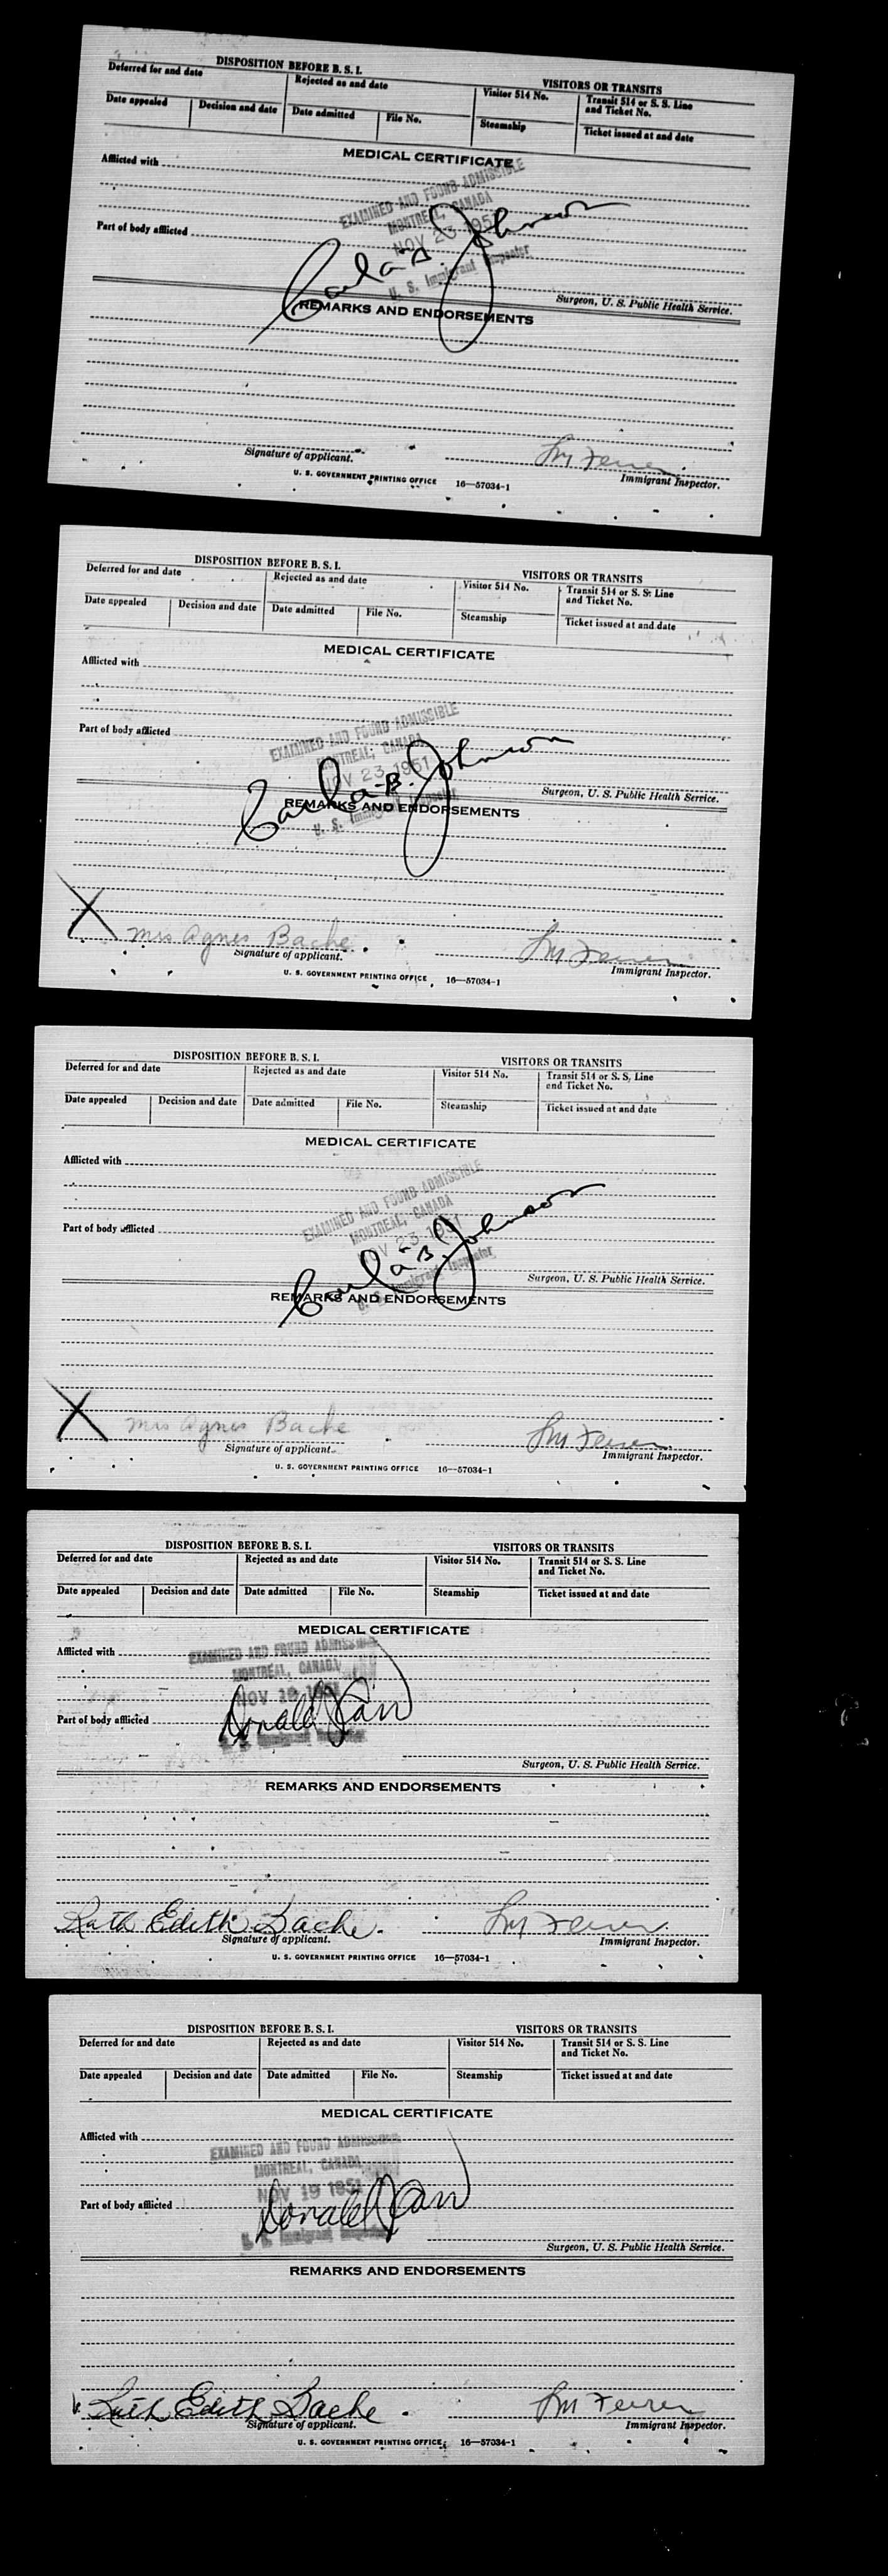 DISPOSITION BEFORE B. S. I.
VISITORS OR TRANSITS
Deferred for and date
Rejected as and date
Visitor 514 No.
Transit 514 or S. S. Line and Ticket No.
Date appealed
Decision and date
Date admitted
File No.
Steamship
Ticket issued at and date
MEDICAL CERTIFICATE
Afflicted with
EXAMINED AND FOUND ADMISSIBLE
MONTREAL, CANADA
NOV 23 1951
U. S. Immigrant Inspector
Part of body afflicted
Carla B. Johnson
Surgeon, U. S. Public Health Service.
REMARKS AND ENDORSEMENTS
Signature of applicant.
Immigrant Inspector.
U. S. GOVERNMENT PRINTING OFFICE 16—57034-1
DISPOSITION BEFORE B. S. I.
VISITORS OR TRANSITS
Deferred for and date
Rejected as and date
Visitor 514 No.
Transit 514 or S. S. Line and Ticket No.
Date appealed
Decision and date
Date admitted
File No.
Steamship
Ticket issued at and date
MEDICAL CERTIFICATE
Afflicted with
EXAMINED AND FOUND ADMISSIBLE
MONTREAL, CANADA
NOV 23 1951
U. S. Immigrant Inspector
Part of body afflicted
Carla B. Johnson
Surgeon, U. S. Public Health Service.
REMARKS AND ENDORSEMENTS
X Mrs Agnes Bache
Signature of applicant.
Immigrant Inspector.
U. S. GOVERNMENT PRINTING OFFICE 16—57034-1
DISPOSITION BEFORE B. S. I.
VISITORS OR TRANSITS
Deferred for and date
Rejected as and date
Visitor 514 No.
Transit 514 or S. S. Line and Ticket No.
Date appealed
Decision and date
Date admitted
File No.
Steamship
Ticket issued at and date
MEDICAL CERTIFICATE
Afflicted with
EXAMINED AND FOUND ADMISSIBLE
MONTREAL, CANADA
NOV 23 1951
U. S. Immigrant Inspector
Part of body afflicted
Carla B. Johnson
Surgeon, U. S. Public Health Service.
REMARKS AND ENDORSEMENTS
X Mrs Agnes Bache
Signature of applicant.
Immigrant Inspector.
U. S. GOVERNMENT PRINTING OFFICE 16—57034-1
DISPOSITION BEFORE B. S. I.
VISITORS OR TRANSITS
Deferred for and date
Rejected as and date
Visitor 514 No.
Transit 514 or S. S. Line and Ticket No.
Date appealed
Decision and date
Date admitted
File No.
Steamship
Ticket issued at and date
MEDICAL CERTIFICATE
Afflicted with
EXAMINED AND FOUND ADMISSIBLE
MONTREAL, CANADA
NOV 1951
U. S. Immigrant Inspector
Part of body afflicted
Donald
Surgeon, U. S. Public Health Service.
REMARKS AND ENDORSEMENTS
Ruth Edith Bache.
Signature of applicant.
Immigrant Inspector.
U. S. GOVERNMENT PRINTING OFFICE 16—57034-1
DISPOSITION BEFORE B. S. I.
VISITORS OR TRANSITS
Deferred for and date
Rejected as and date
Visitor 514 No.
Transit 514 or S. S. Line and Ticket No.
Date appealed
Decision and date
Date admitted
File No.
Steamship
Ticket issued at and date
MEDICAL CERTIFICATE
Afflicted with
EXAMINED AND FOUND ADMISSIBLE
MONTREAL, CANADA
NOV 19 1951
U. S. Immigrant Inspector
Part of body afflicted
Donald
Surgeon, U. S. Public Health Service.
REMARKS AND ENDORSEMENTS
Ruth Edith Bache
Signature of applicant.
Immigrant Inspector.
U. S. GOVERNMENT PRINTING OFFICE 16—57034-1